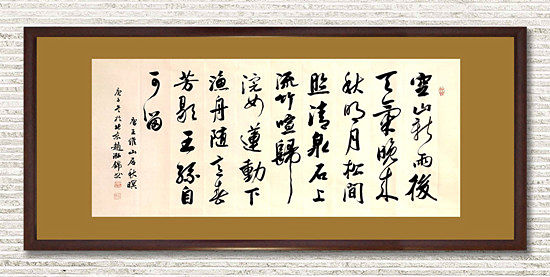 空山新雨後
天氣晚來
秋明月松間
照清泉石上
流竹喧歸
浣女蓮動下
漁舟隨意春
芳歇王孫自
可留
唐王維山居秋暝
於北京趙